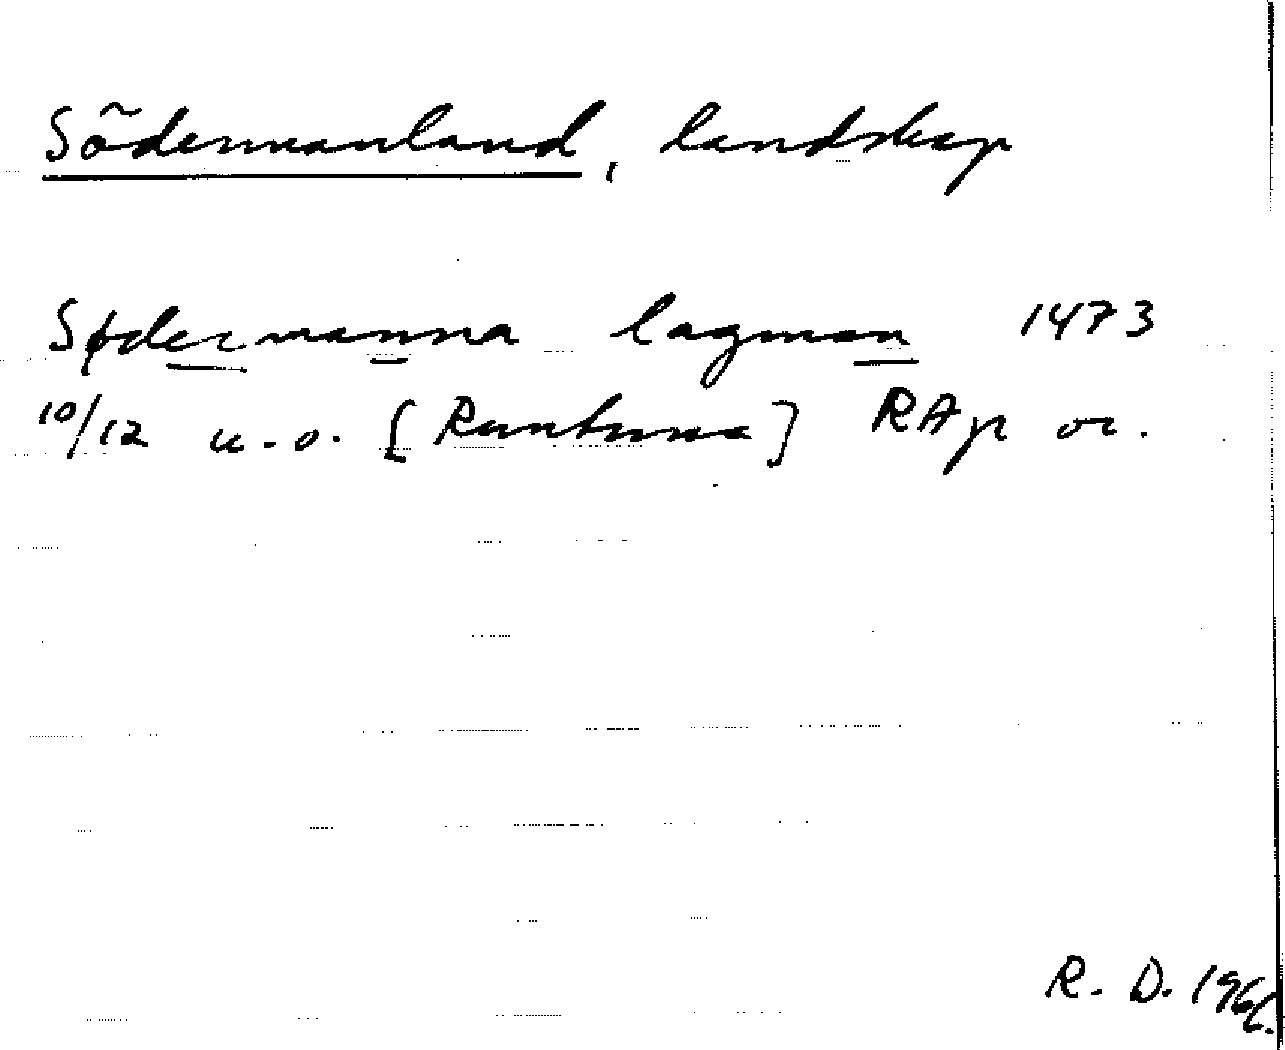 Södermanland, landskap
Sødermanna lagman 1473
10/12 u.o. [Runtuna] RAp or.
R. D. 196